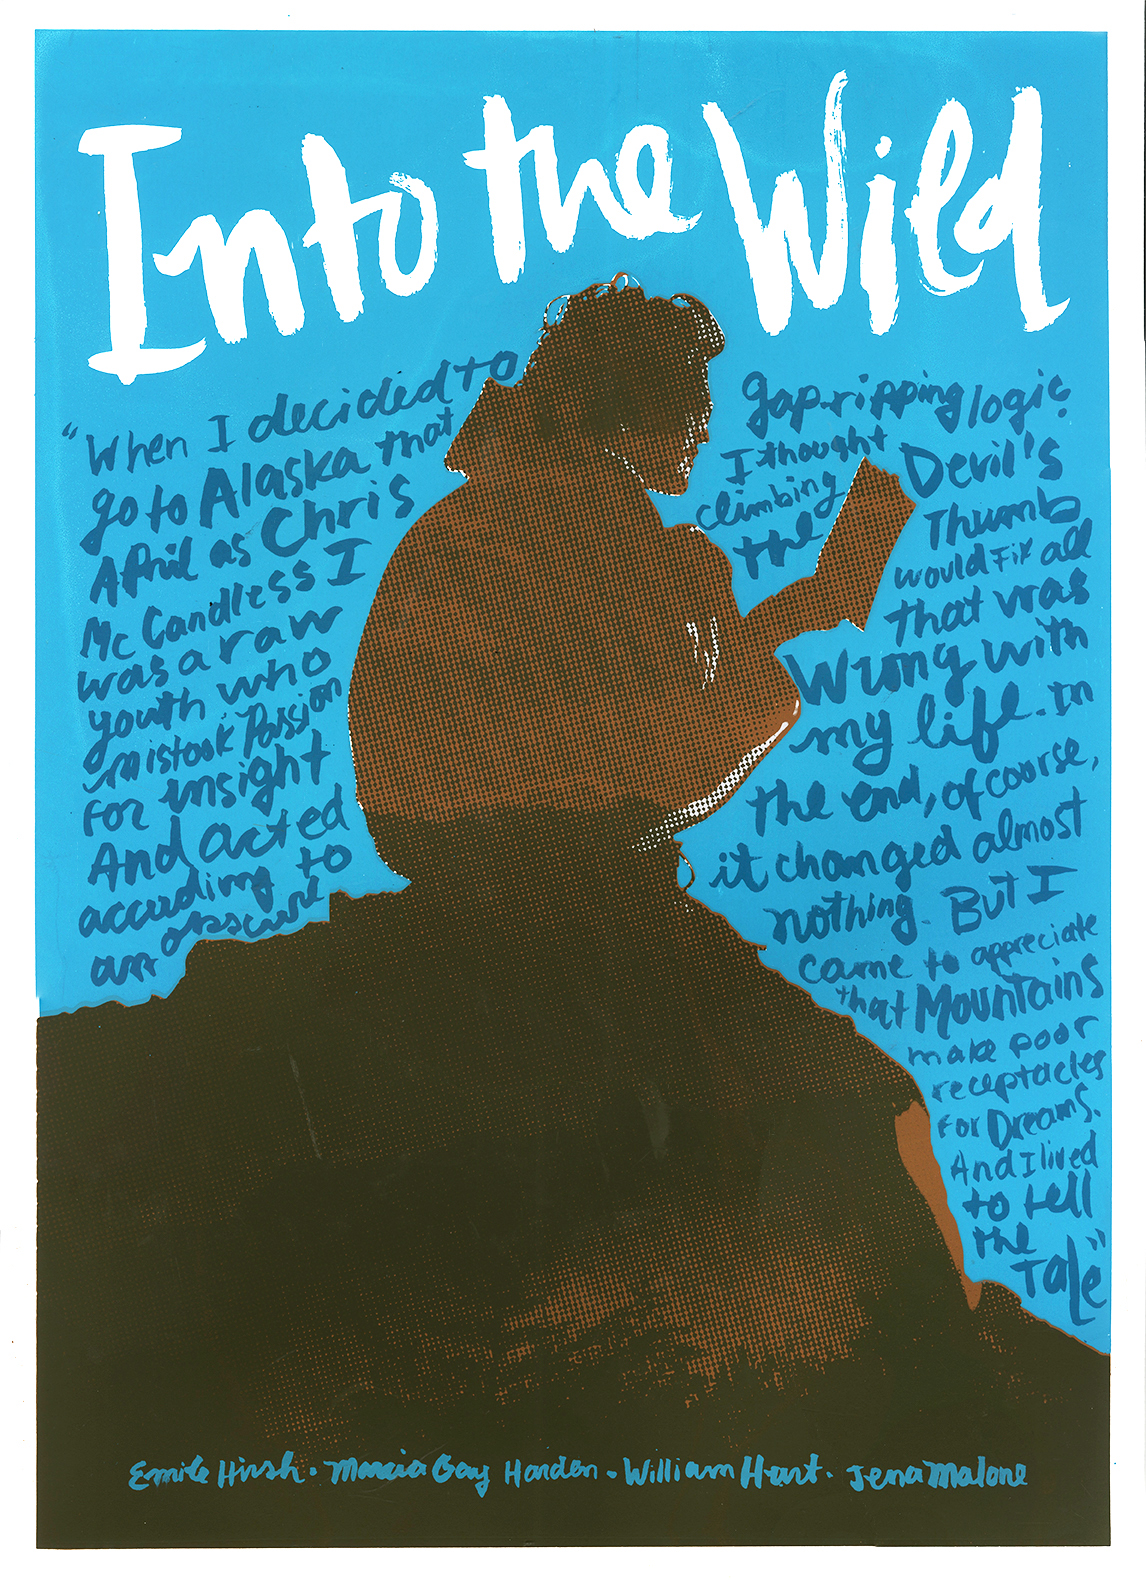 Into the Wild
"When I decided to
go to Alaska that
April as Chris
McCandless I
was a raw
youth who
mistook Passion
for insight
And acted
according to
an obscure
gap-ripping logic.
I thought
climbing
the
Devil's
Thumb
would Fix all
that was
Wrong with
my life. In
the end, of course,
it changed almost
nothing. But I
came to appreciate
that Mountains
make poor
receptacles
For Dreams.
And I lived
to tell
the
Tale"
Emile Hirsh. Marcia Gay Harden. William Hurt. Jena Malone